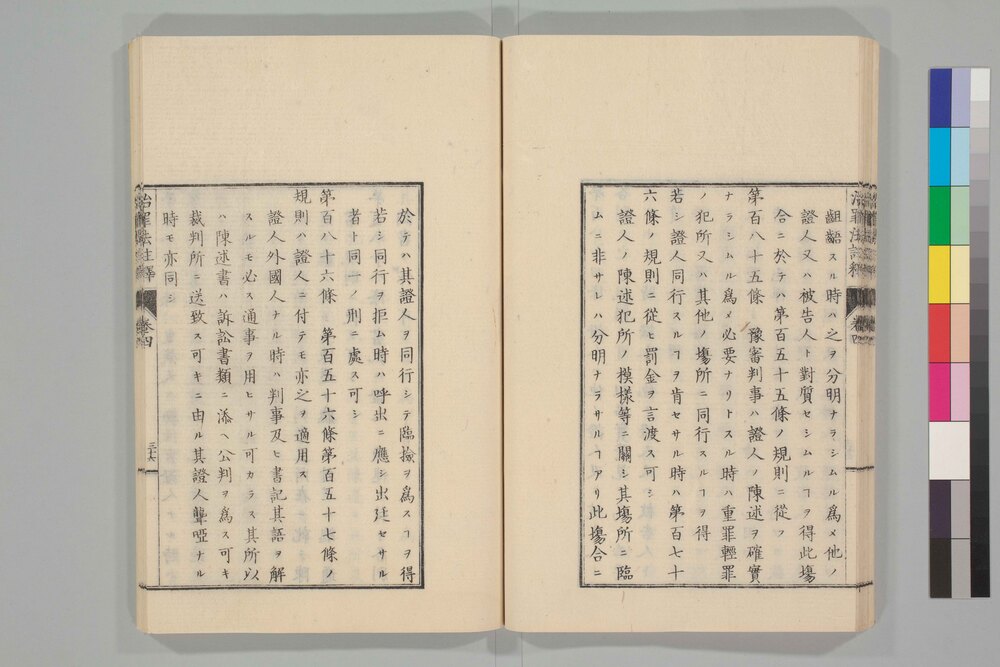 齟齬スル時ハ之ヲ分明ナラシムル爲メ他ノ
證人又ハ被告人ト對質セシムルヿヲ得此塲
合ニ於テハ第百五十五條ノ規則ニ從フ
第百八十五條 豫審判事ハ證人ノ陳述ヲ確實
ナラシムル爲メ必要ナリトスル時ハ重罪輕罪
ノ犯所又ハ其他ノ塲所ニ同行スルヿヲ得
若シ證人同行スルヿヲ肯セサル時ハ第百七十
六條ノ規則ニ從ヒ罰金ヲ言渡ス可シ
證人ノ陳述犯所ノ模樣等ニ關シ其塲所ニ臨
ムニ非サレハ分明ナラサルヿアリ此塲合ニ
治罪法註釋 卷四
於テハ其證人ヲ同行シテ臨撿ヲ爲スヿヲ得
若シ同行ヲ拒ム時ハ呼出ニ應シ出廷セサル
者ト同一ノ刑ニ處ス可シ
第百八十六條 第百五十六條第百五十七條ノ
規則ハ證人ニ付テモ亦之ヲ適用ス
證人外國人ナル時ハ判事及ヒ書記其語ヲ解
スルモ必ス通事ヲ用ヒサル可カラス其所以
ハ陳述書ハ訴訟書類ニ添ヘ公判ヲ爲ス可キ
裁判所ニ送致ス可キニ由ル其證人聾啞ナル
時モ亦同シ
治罪法註釋 卷四 三十六